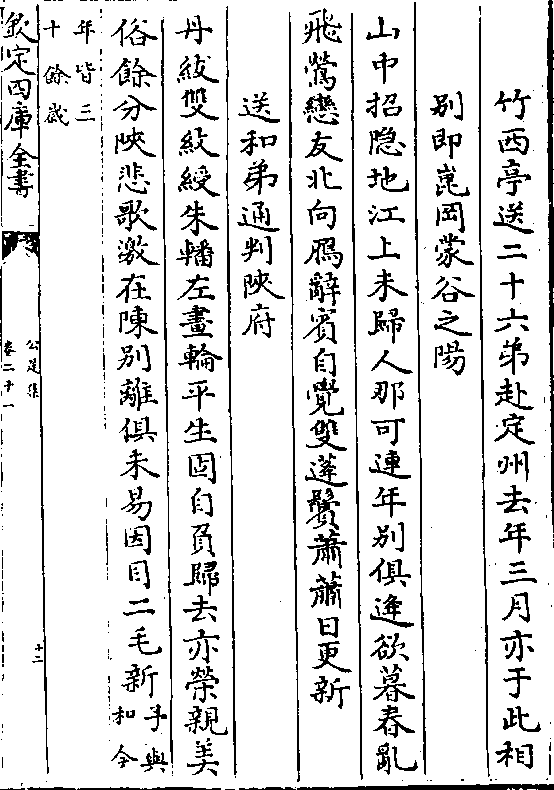 竹西亭送二十六弟赴定州去年三月亦于此相
別即崑岡蒙谷之陽
山中招隐地江上未歸人那可連年别俱逢欲暮春亂
飛鶯戀友北向鴈辭賓自覺雙蓬鬢蕭蕭日更新
送和弟通判陜府
丹紱雙紋綬朱轓左畫輪平生固自負歸去亦榮親美
俗餘分陜悲歌激在陳别離俱未易因目二毛新予與
和令
年皆三
十餘歲
欽定四庫全書
公是集
卷二十一
十二